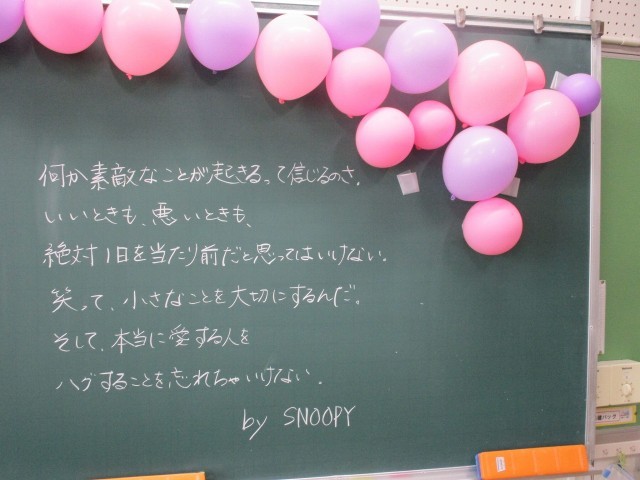 何か素敵なことが起きるって信じるのさ。
いいときも、悪いときも、
絶対1日を当たり前だと思ってはいけない。
笑って、小さなことを大切にするんだ。
そして、本当に愛する人を
ハグすることを忘れちゃいけない。
by SNOOPY